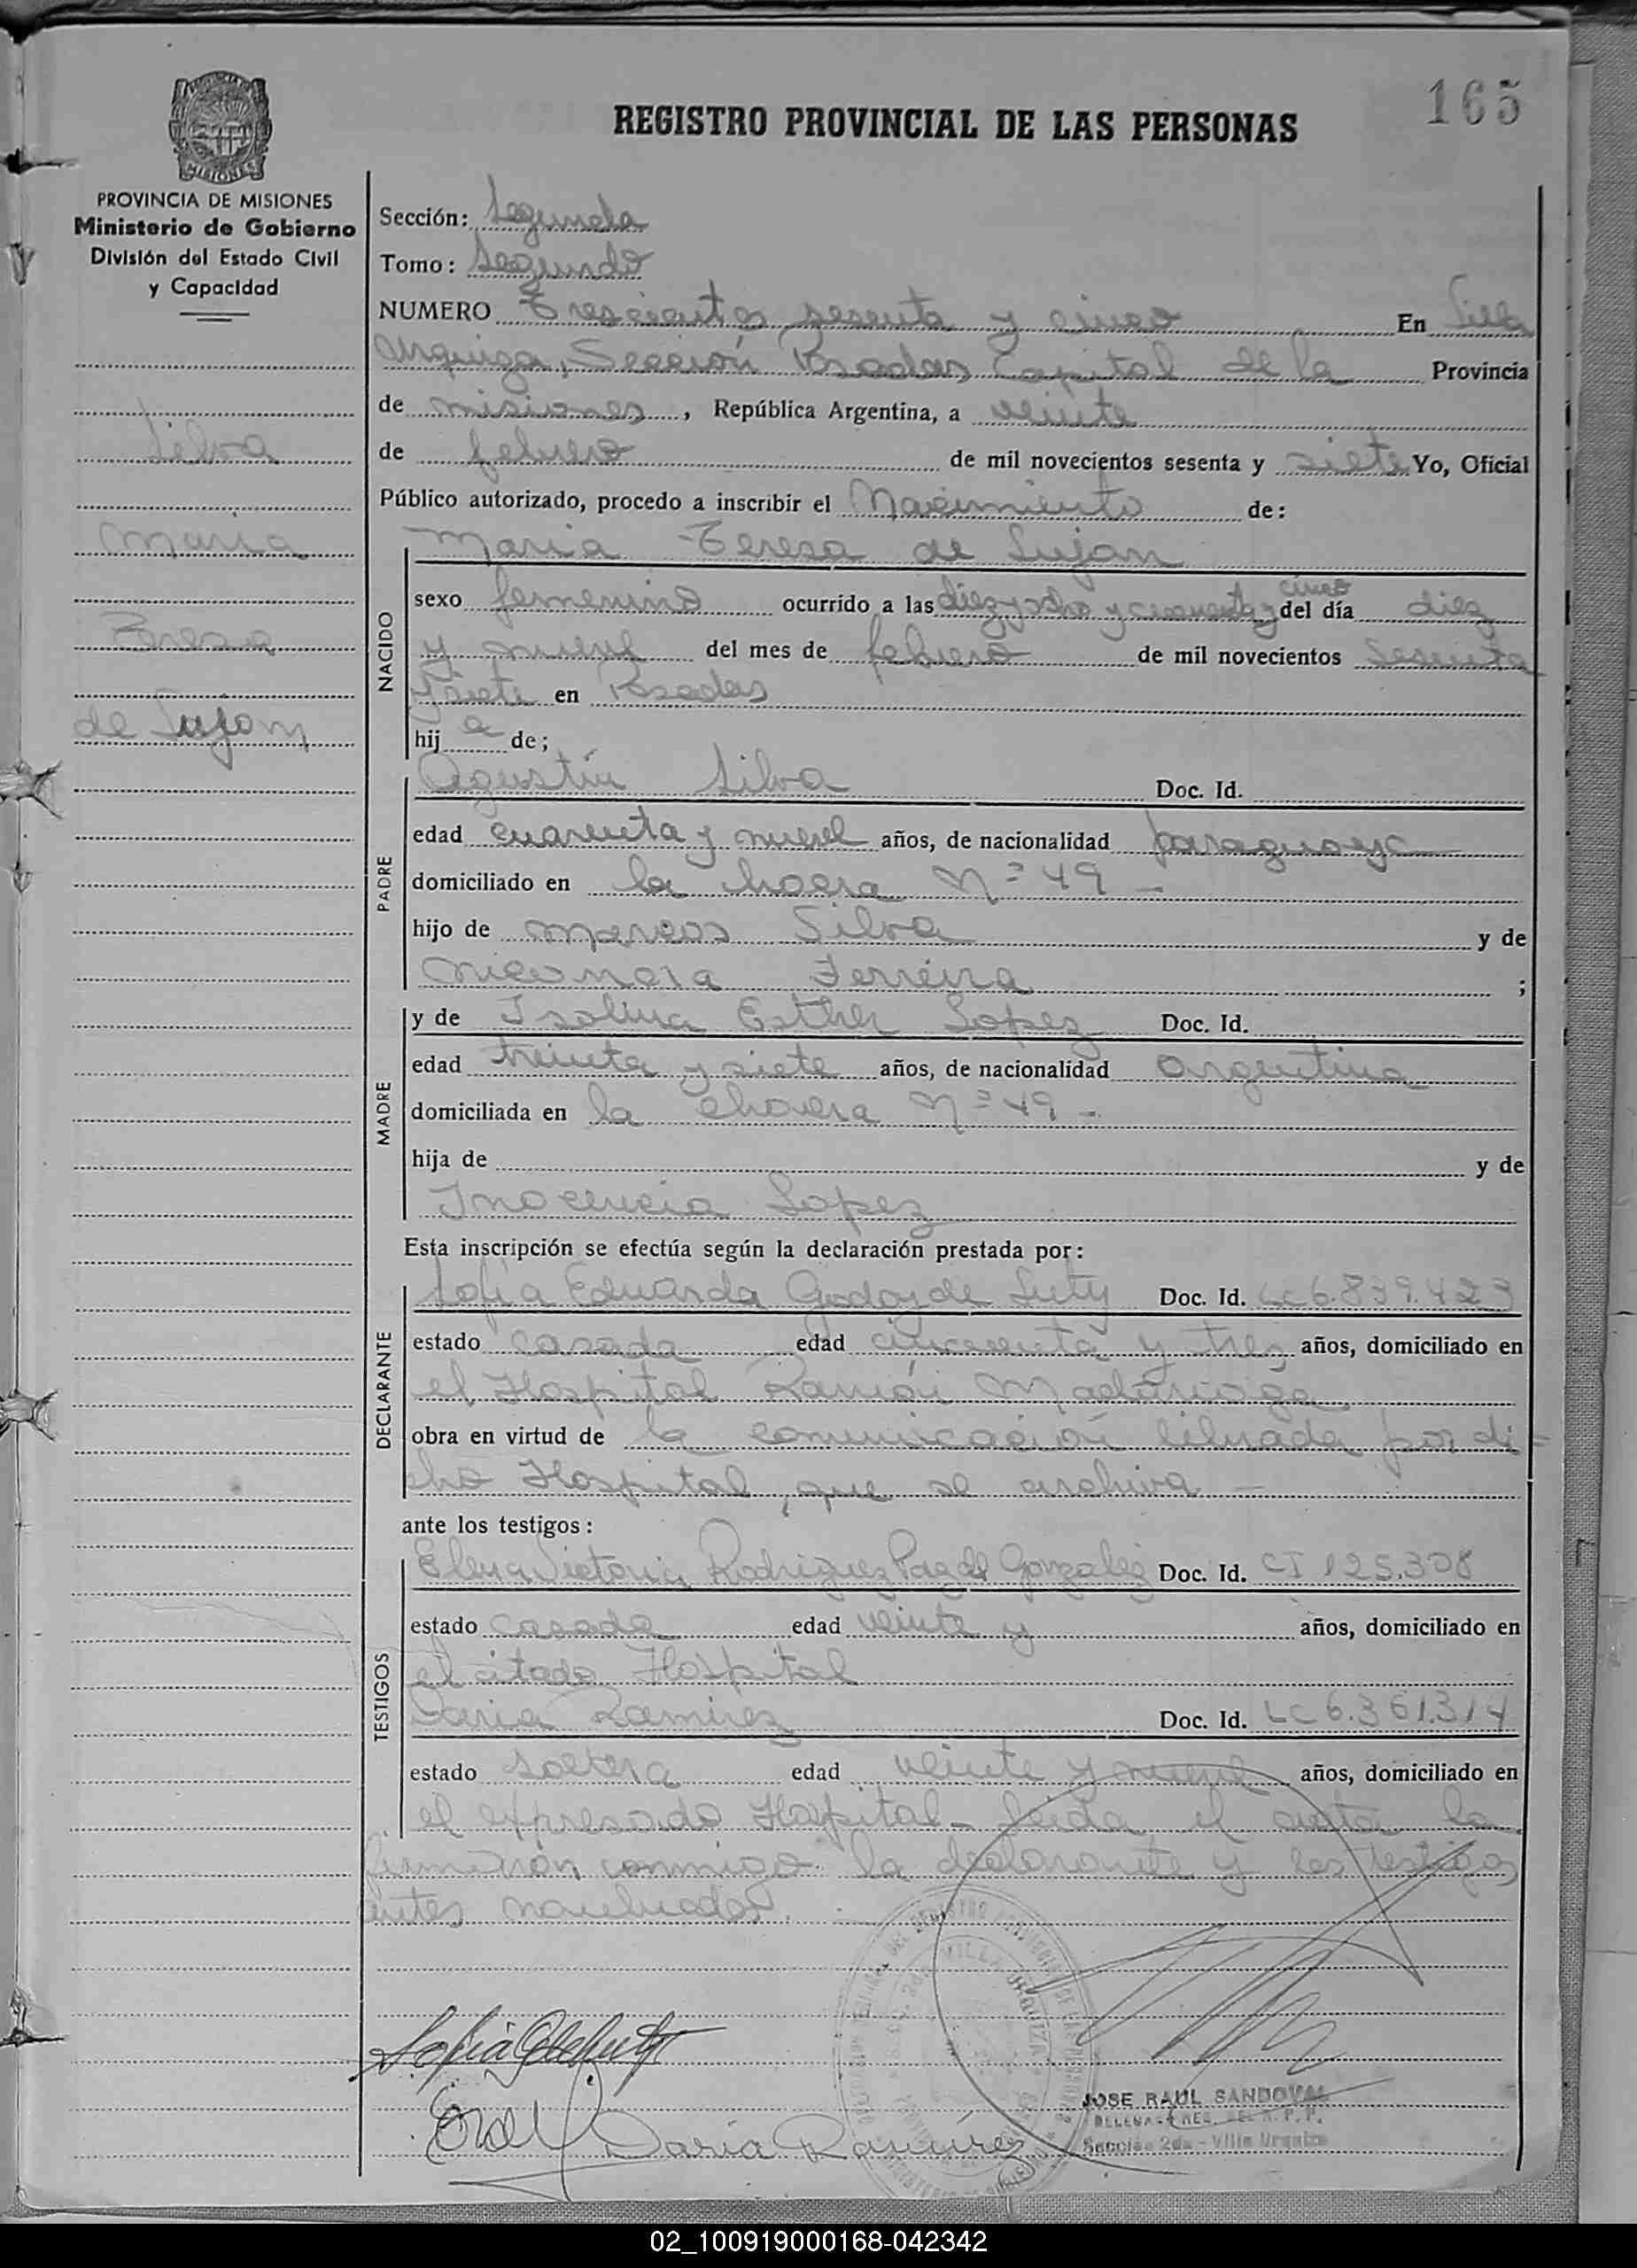 165
REGISTRO PROVINCIAL DE LAS PERSONAS
MISIONES
PROVINCIA DE MISIONES
Ministerio de Gobierno
División del Estado Civil
y Capacidad
Silva
Maria
Teresa
de Lujan
Sección: Segunda
Tomo: Segundo
NUMERO Trescientos sesenta y cinco En Villa
Urquiza, Sección Posadas Capital de la Provincia
de misiones, República Argentina, a veinte
de febrero de mil novecientos sesenta y siete Yo, Oficial
Público autorizado, procedo a inscribir el Nacimiento de:
NACIDO
Maria Teresa de Lujan
cinco
sexo femenino ocurrido a las diez y ocho y cuarenta y del día diez
y nueve del mes de febrero de mil novecientos sesenta
y siete en Posadas
hij a de;
PADRE
Agustín Silva Doc. Id.
edad cuarenta y nueve años, de nacionalidad paraguaya
domiciliado en la chacra Nº 49 -
hijo de Marcos Silva y de
Ferreira ;
MADRE
y de Isolina Esther Lopez Doc. Id.
edad treinta y siete años, de nacionalidad Argentina
domiciliada en la chacra Nº 49 -
hija de y de
Inocencia Lopez
Esta inscripción se efectúa según la declaración prestada por:
DECLARANTE
Sofia Eduarda Godoy de Doc. Id. LC 6.839.423
estado casada edad cincuenta y tres años, domiciliado en
el Hospital Ramón Madariaga
obra en virtud de la comunicación librada por di-
cho Hospital, que se archiva -
ante los testigos:
TESTIGOS
Elena Victoria Rodriguez Paz de Gonzalez Doc. Id. CI 125.308
estado casada edad veinte y años, domiciliado en
el citado Hospital
Daria Ramirez Doc. Id. LC 6.361.314
estado soltera edad veinte y nueve años, domiciliado en
el expresado Hospital - Leida el acta la
firmaron conmigo la declarante y los testigos
antes nombrados.
VILLA URQUIZA
JOSE RAUL SANDOVAL
R. P. P.
Sección 2da - Villa Urquiza
Daria Ramirez
02_100919000168-042342